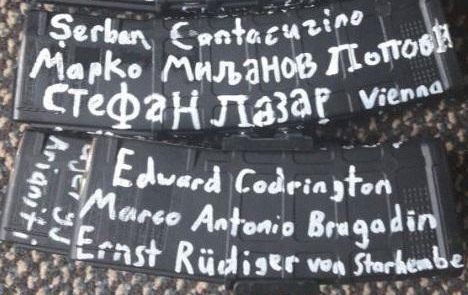 Șerban Cantacuzino
Марко Миљанов Попови
Стефан Лазар Vienna
Edward Codrington
Marco Antonio Bragadin
Ernst Rüdiger von Starhembe